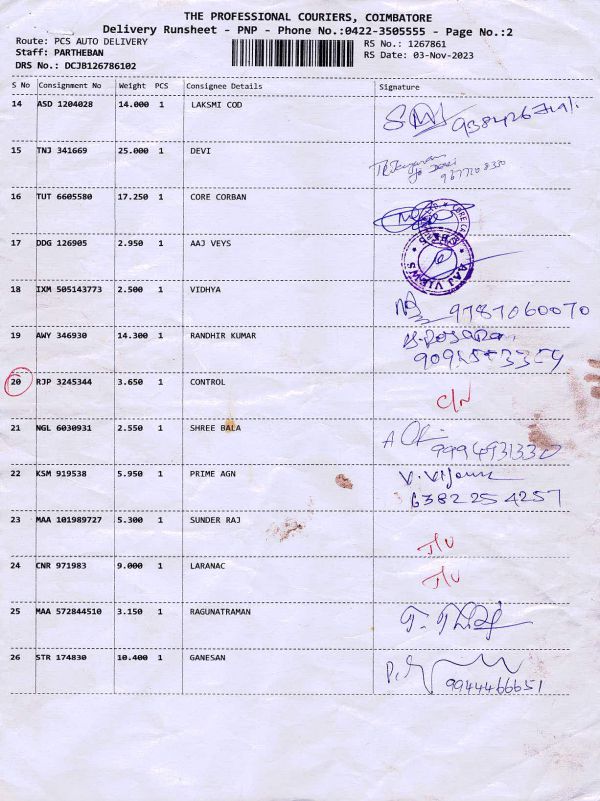 THE PROFESSIONAL COURIERS, COIMBATORE
Delivery Runsheet - PNP - Phone No.:0422-3505555 - Page No.:2
Route: PCS AUTO DELIVERY
RS No.: 1267861
Staff: PARTHEBAN
RS Date: 03-Nov-2023
DRS No.: DCJB126786102
S No Consignment No Weight PCS Consignee Details Signature
14 ASD 1204028 14.000 1 LAKSMI COD
15 TNJ 341669 25.000 1 DEVI
16 TUT 6605580 17.250 1 CORE CORBAN
17 DDG 126905 2.950 1 AAJ VEYS
18 IXM 505143773 2.500 1 VIDHYA 9787060070
19 AWY 346930 14.300 1 RANDHIR KUMAR
20 RJP 3245344 3.650 1 CONTROL C/N
21 NGL 6030931 2.550 1 SHREE BALA
22 KSM 919538 5.950 1 PRIME AGN
6382254257
23 MAA 101989727 5.300 1 SUNDER RAJ
24 CNR 971983 9.000 1 LARANAC
25 MAA 572844510 3.150 1 RAGUNATRAMAN
26 STR 174830 10.400 1 GANESAN
9944466651